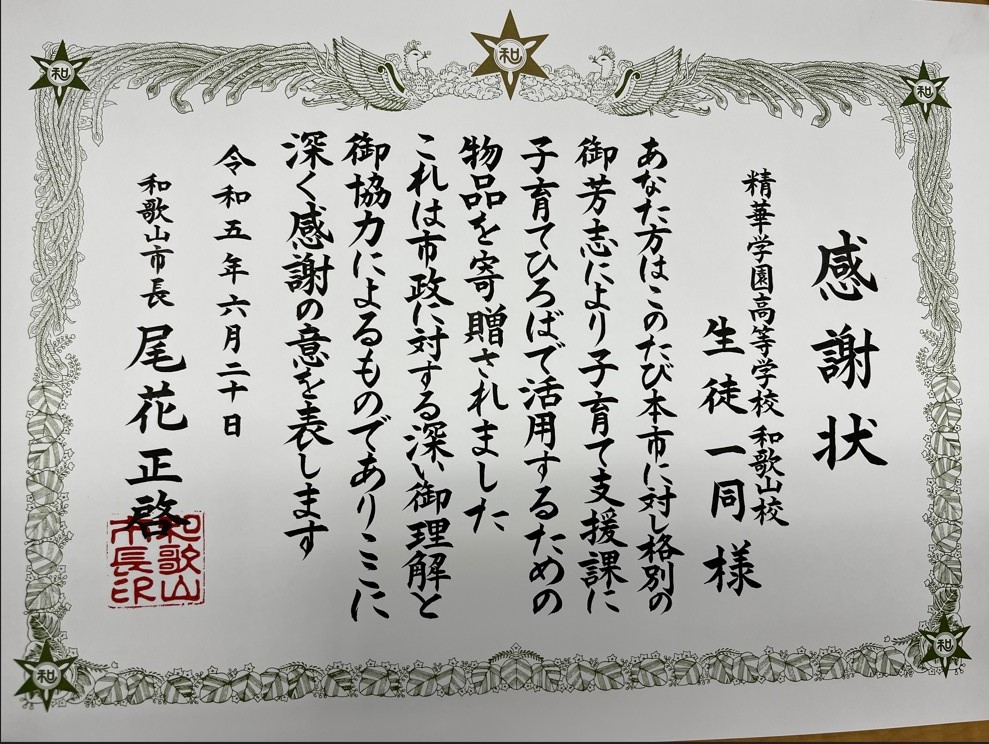 感謝状
精華学園高等学校 和歌山校
生徒一同 様
あなた方はこのたび本市に対し格別の
御芳志により子育て支援課に
子育てひろばで活用するための
物品を寄贈されました
これは市政に対する深い御理解と
御協力によるものでありここに
深く感謝の意を表します
令和五年六月二十日
和歌山市長 尾花正啓
和歌山
市長印
和
和
和
和
和